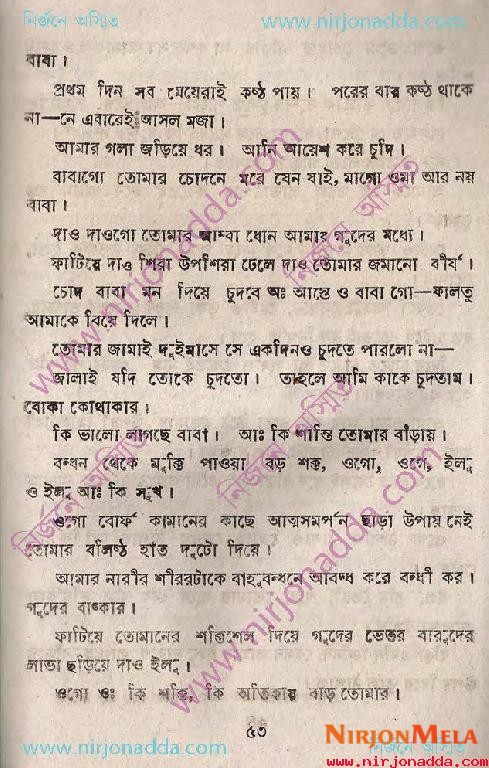 নির্জনে অস্মিত www.nirjonadda.com
বাবা।
প্রথম দিন সব মেয়েরাই কষ্ঠ পায়। পরের বার কষ্ঠ থাকে
না—নে এবারেই আসল মজা।
আমার গলা জড়িয়ে ধর। আমি আয়েশ করে চুদি।
বাবাগো তোমার চোদনে মরে যেন যাই, মাগো ওমা আর নয়
বাবা।
দাও দাওগো তোমার আম্বা ধোন আমার গুদের মধ্যে।
ফাটিয়ে দাও শিরা উপশিরা ঢেলে দাও তোমার জমানো বীর্য।
চোদ বাবা মন দিয়ে চুদবে অঃ আস্তে ও বাবা গো—ফালতু
আমাকে বিয়ে দিলে।
তোমার জামাই দুইমাসে সে একদিনও চুদতে পারলো না—
জালাই যদি তোকে চুদতো। তাহলে আমি কাকে চুদতাম।
বোকা কোথাকার।
কি ভালো লাগছে বাবা। আঃ কি শান্তি তোমার বাঁড়ায়।
বন্ধন থেকে মুক্তি পাওয়া বড় শক্ত, ওগো, ওগে, ইলু
ও ইলু আঃ কি সুখ।
ওগো বোফর্ কামানের কাছে আত্মসমর্পন ছাড়া উপায় নেই
তোমার বলিষ্ঠ হাত দুটো দিয়ে।
আমার নারীর শীররটাকে বাহুবন্ধনে আবদ্ধ করে বন্ধী কর।
গুদের বাৎকার।
ফাটিয়ে তোমানের শক্তিশেল দিয়ে গুদের ভেতর বারুদের
লাভা ছড়িয়ে দাও ইলু।
ওগো ওঃ কি শক্তি, কি অতিকায় বাড় তোমার।
৫৩
NIRJONMELA
www.nirjonadda.com নির্জনে অস্মিত
www.nirjonadda.com